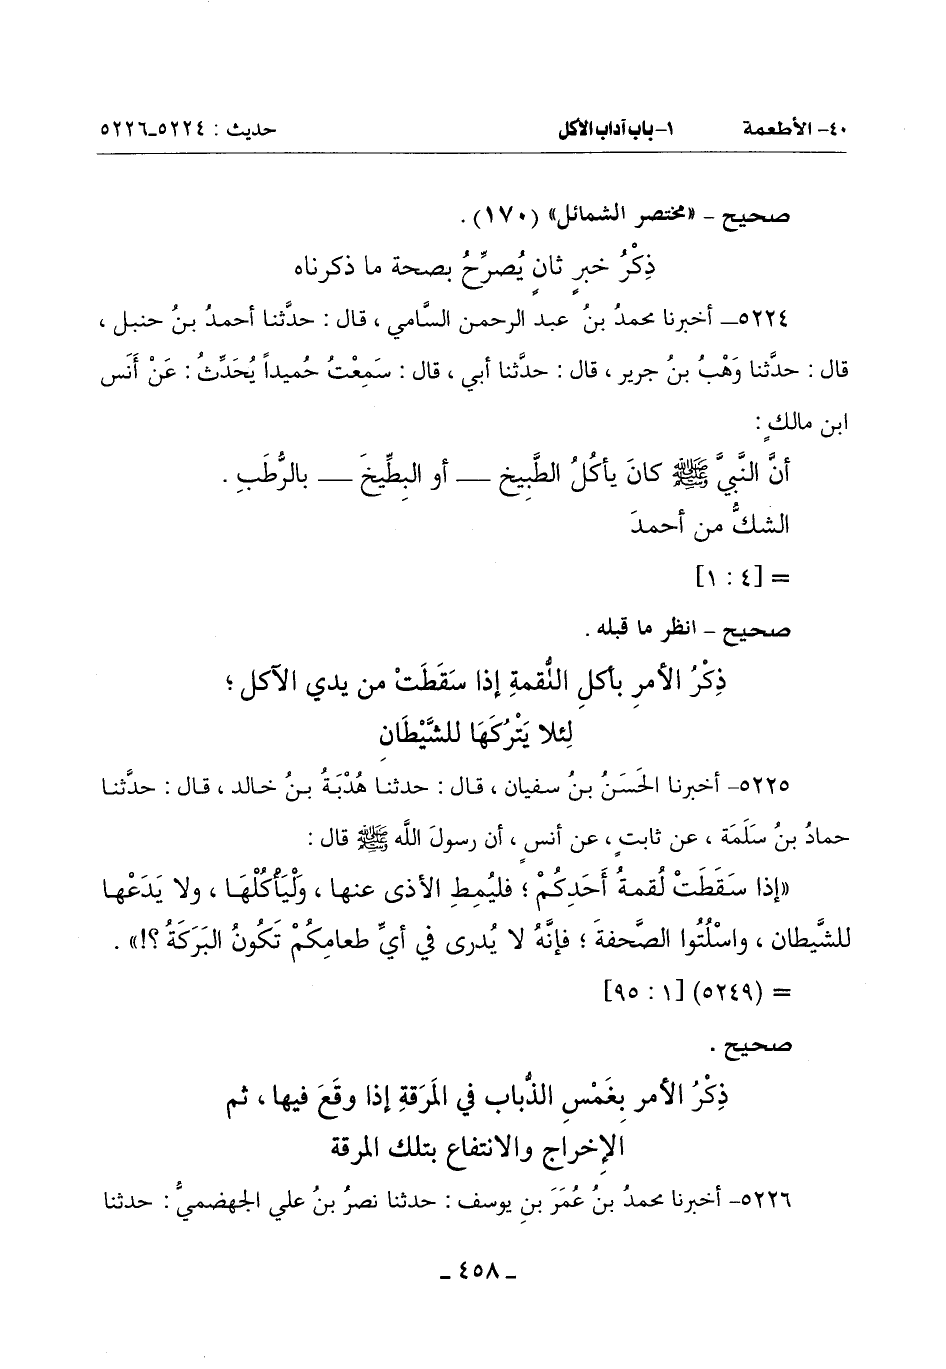 ٤٠- الأطعمة ١- باب آداب الأكل حديث : ٥٢٢٤-٥٢٢٦
صحيح - «مختصر الشمائل» (١٧٠) .
ذِكْرُ خبرٍ ثانٍ يُصرِّحُ بصحة ما ذكرناه
٥٢٢٤- أخبرنا محمدُ بنُ عبد الرحمن السَّامي ، قال : حدَّثنا أحمدُ بنُ حنبل ،
قال : حدَّثنا وَهْبُ بنُ جرير ، قال : حدَّثنا أبي ، قال : سَمِعْتُ حُميداً يُحَدِّثُ : عَنْ أَنَس
ابن مالكٍ :
أنَّ النَّبيَّ ﷺ كانَ يأكُلُ الطَّبيخِ — أو البطِّيخَ — بالرُّطَبِ .
الشكُّ من أحمدَ
= [٤ : ١]
صحيح - انظر ما قبله .
ذِكْرُ الأمرِ بأكلِ اللُّقمةِ إذا سَقَطَتْ من يدي الآكل ؛
لِئلا يَتْرُكَهَا للشَّيْطَانِ
٥٢٢٥- أخبرنا الحَسَنُ بنُ سفيان ، قال : حدثنا هُدْبَةُ بنُ خالد ، قال : حدَّثنا
حمادُ بنُ سَلَمَة ، عن ثابتٍ ، عن أنسٍ ، أن رسولَ اللَّه ﷺ قال :
«إذا سَقَطَتْ لُقمةُ أَحَدِكُمْ ؛ فليُمطِ الأذى عنها ، وَلْيَأْكُلْهَا ، ولا يَدَعْها
للشَّيطان ، واسْلُتُوا الصَّحفةَ ؛ فإنَّهُ لا يُدرى في أيِّ طعامِكُمْ تَكُونُ البَرَكَةُ ؟!» .
= (٥٢٤٩) [١ : ٩٥]
صحيح .
ذِكْرُ الأمرِ بغَمْسِ الذُّباب في المَرَقةِ إذا وقَعَ فيها ، ثم
الإخراجِ والانتفاعِ بتلك المرقة
٥٢٢٦- أخبرنا محمدُ بنُ عُمَرَ بنِ يوسف : حدثنا نصرُ بنُ علي الجهضميُّ : حدثنا
- ٤٥٨ -